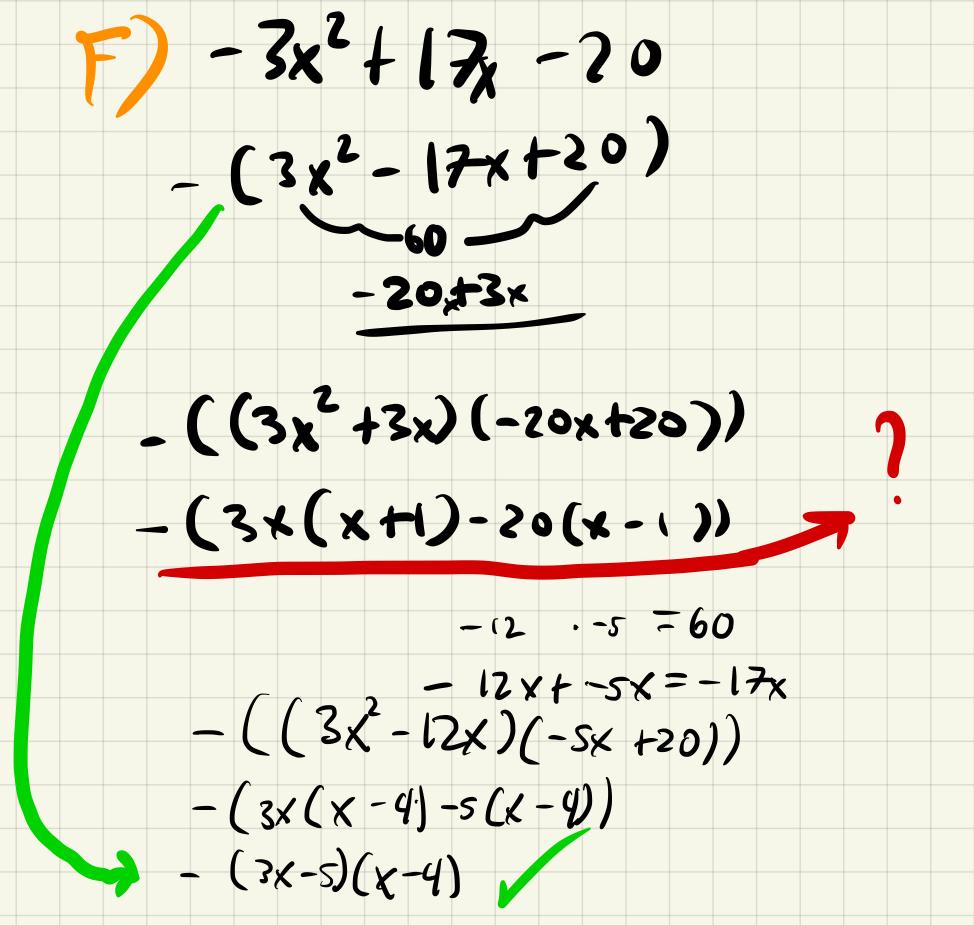 F) -3x² + 17x - 20
- (3x² - 17x + 20)
60
-20x+3x
- ((3x² + 3x)(-20x+20))
- (3x(x+1) - 20(x - 1))
?
-12 · -5 = 60
- 12x + -5x = -17x
- ((3x² - 12x)(-5x + 20))
- (3x(x - 4) - 5(x - 4))
- (3x-5)(x-4)